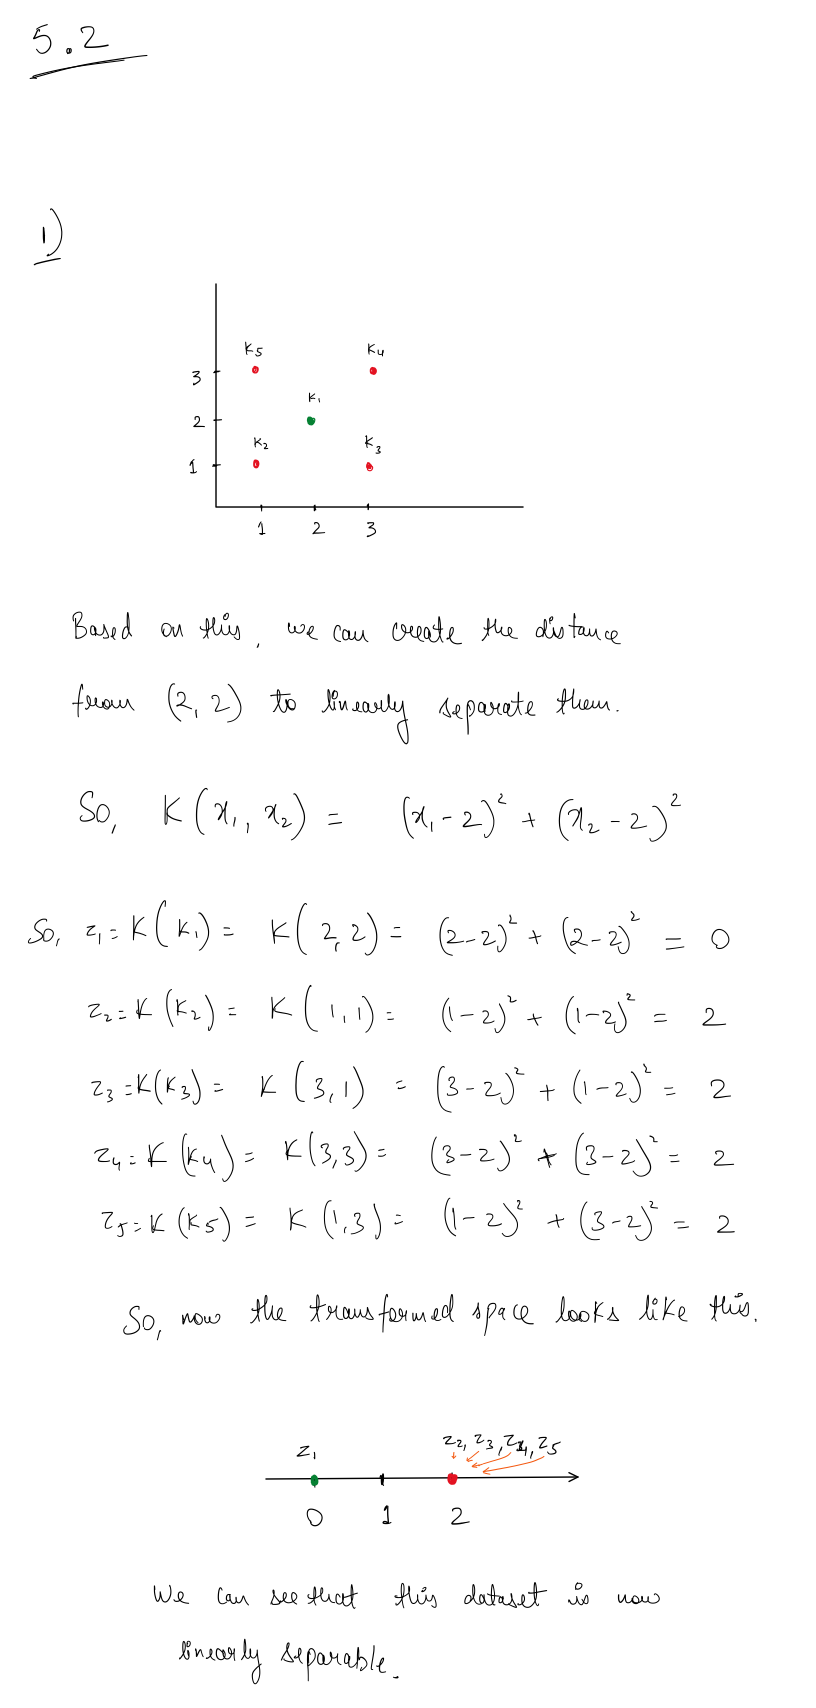 5.2
1)
K5 K4
3
K1
2
K2 K3
1
1 2 3
Based on this, we can create the distance
from (2, 2) to linearly separate them.
So, K(x₁, x₂) = (x₁ - 2)² + (x₂ - 2)²
So, z₁ = K(K₁) = K(2,2) = (2-2)² + (2-2)² = 0
z₂ = K(K₂) = K(1,1) = (1-2)² + (1-2)² = 2
z₃ = K(K₃) = K(3,1) = (3-2)² + (1-2)² = 2
z₄ = K(K₄) = K(3,3) = (3-2)² + (3-2)² = 2
z₅ = K(K₅) = K(1,3) = (1-2)² + (3-2)² = 2
So, now the transformed space looks like this.
z₁ z₂, z₃, z₄, z₅
0 1 2
We can see that this dataset is now
linearly separable.